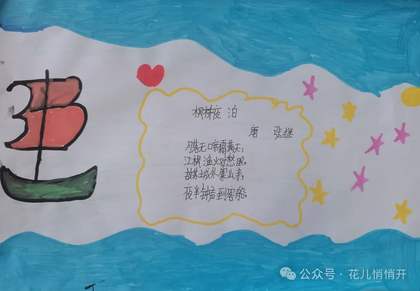 枫桥夜 泊
唐 张继
月落乌啼霜满天，
江枫渔火对愁眠。
姑苏城外寒山寺，
夜半钟声到客船。
公众号 · 花儿悄悄开